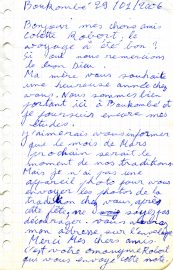 Boukombé 29/01/2006
Bonjour mes chers amis
Colette Robert, le
voyage a été bon ?
Si oui nous remercions
le bon Dieu.
Ma mère vous souhaite
une heureuse année chez
vous. Nous sommes bien
portant ici à Boukombé et
je poursuis encore mes
études.
J'aimerais vous informer
que le mois de Mars
prochain serait le
moment de nos traditions
Mais je n'ai pas une
appareil photo pour vous
envoyer les photos de la
tradition chez vous, après
cette fête, ne soyez pas
décordés, vous
mon adresse sur l'envelope
Merci Mes chers amis
C'est votre omonyme Robert
qui vous envoye cette note